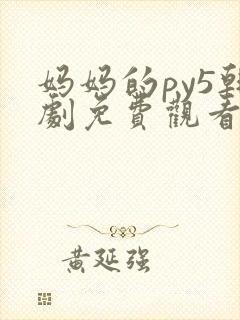 妈妈的py5韩
劇免費觀看
黄延强